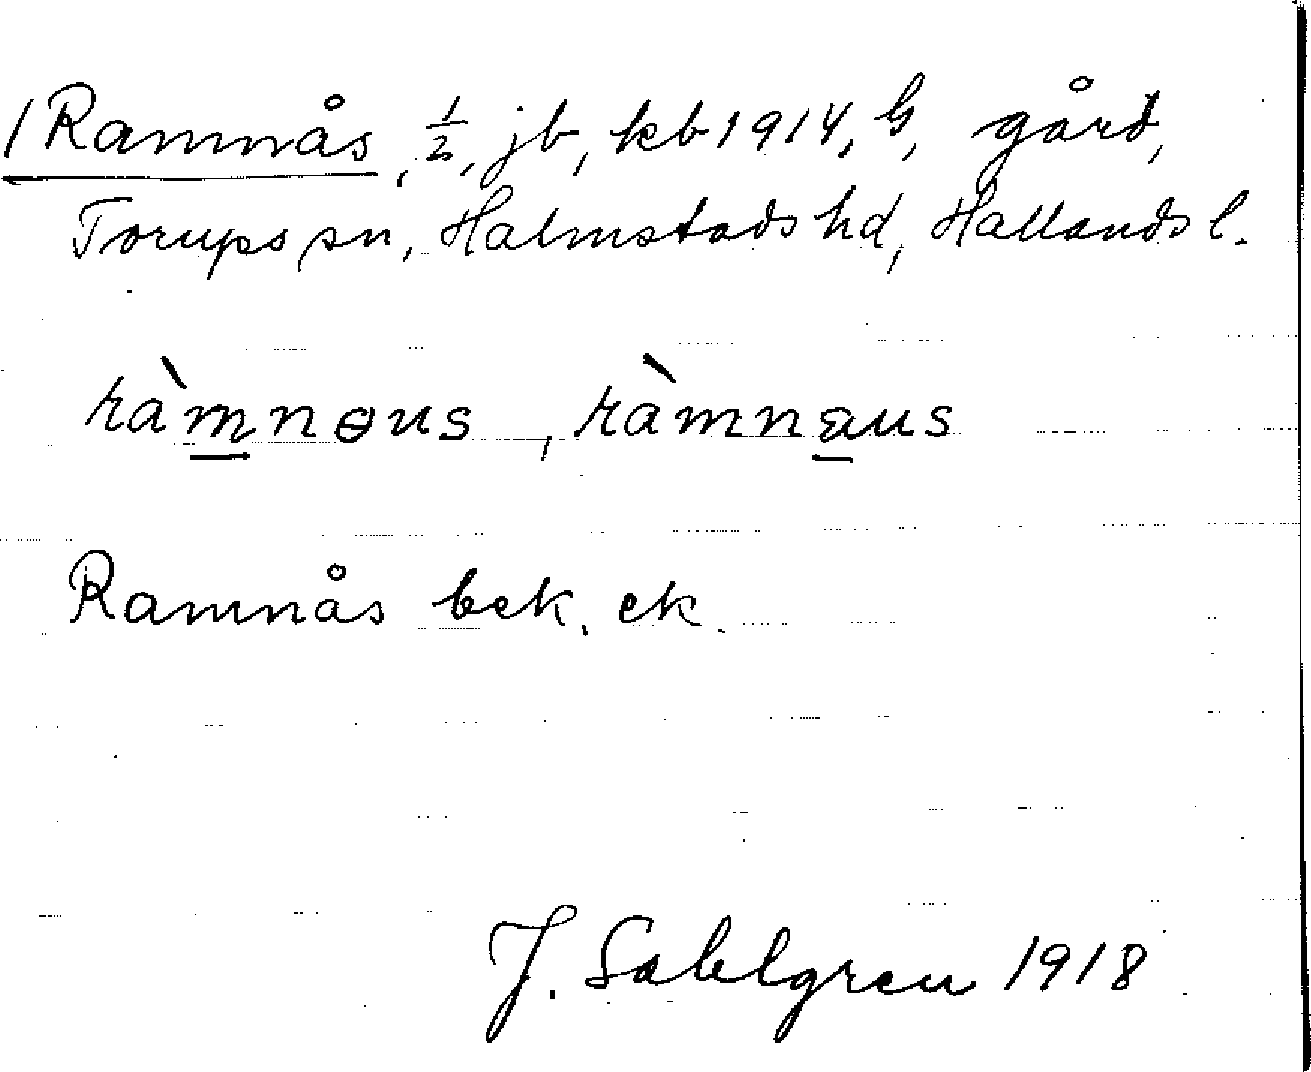 /Ramnås, ½, jb, kb 1914, G, gård,
Torups sn, Halmstads hd, Hallands l.
ràmnɵus, ràmnaus
Ramnås bek. ek.
J. Sahlgren 1918